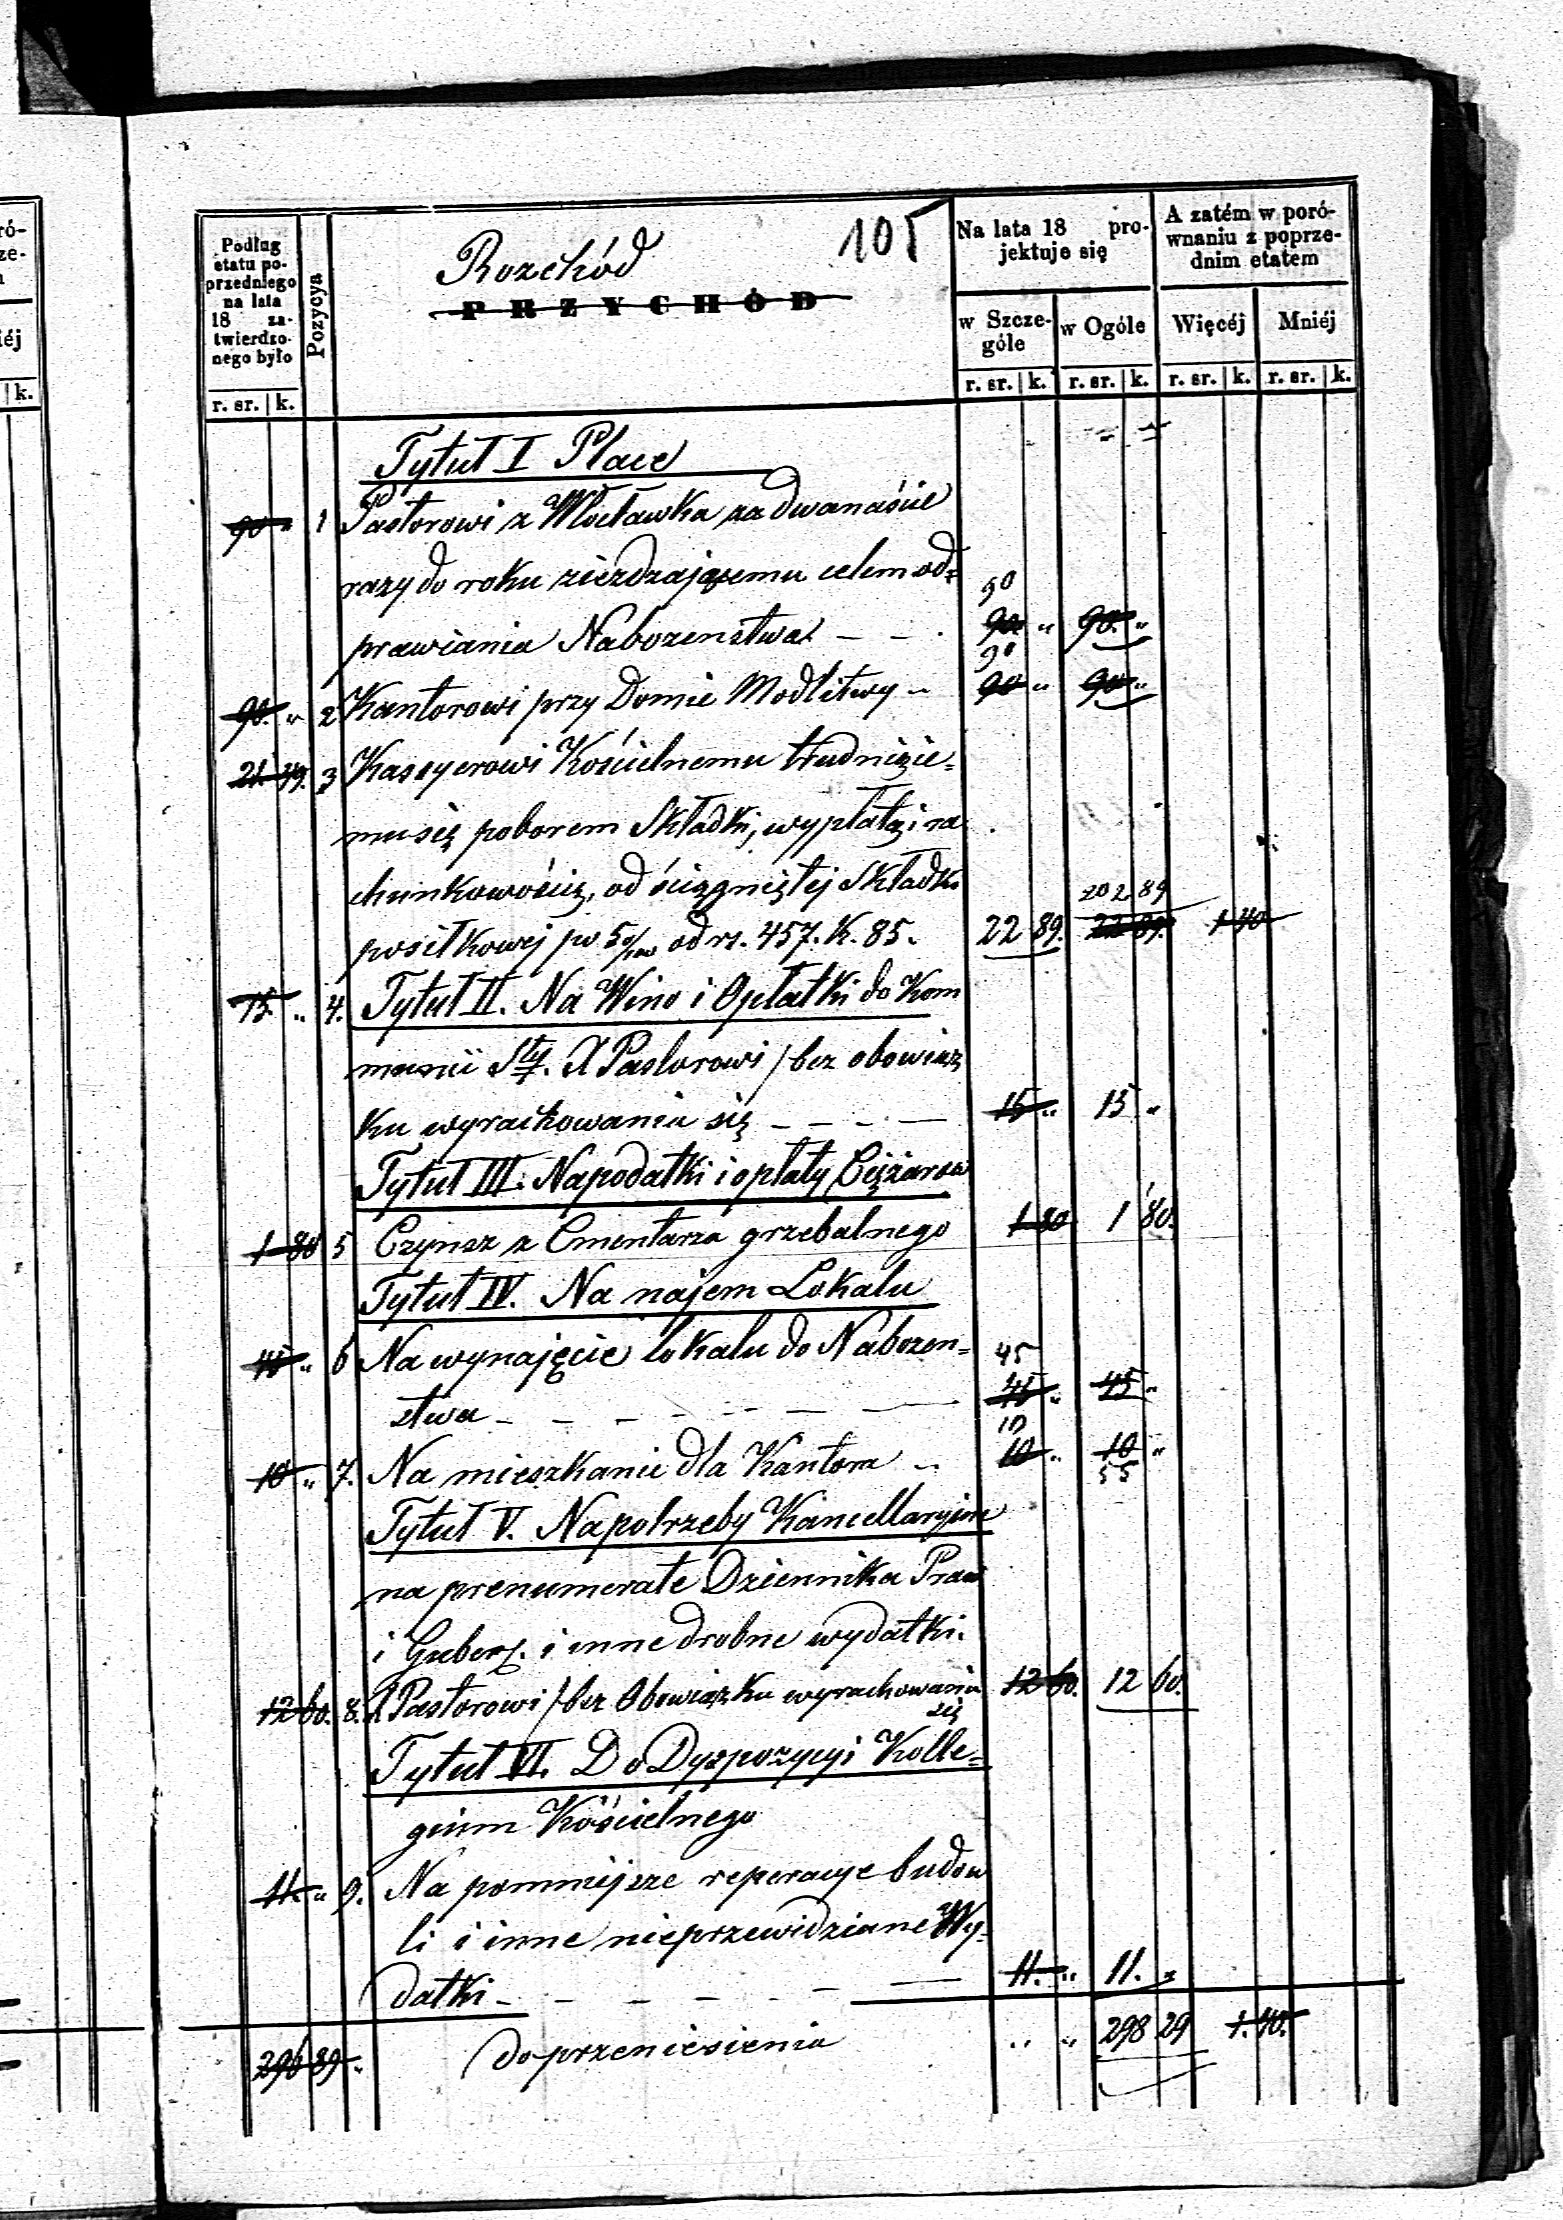 ró-
ze-
iéj
k.
Podług
etatu po-
przedniego
na lata
18 za-
twierdzo-
nego było
r. sr. | k.
Pozycya
Rozchód 105
PRZYCHÓD
Na lata 18 pro-
jektuje się
w Szcze-
góle
w Ogóle
A zatém w poró-
wnaniu z poprze-
dnim etatem
Więcéj Mniéj
r. sr. | k. r. sr. | k. r. sr. | k. r. sr. | k.
Tytuł I Płace
90 " 1 Pastorowi z Włocławka za dwanaście
razy do roku zieżdzającemu celem od=
90
prawiania Nabozenstwa - - . 90 " 90. "
90
90. " 2 Kantorowi przy Domie Modlitwy " 90 " 90 "
21 49. 3 Kassyerowi Kościelnemu trudniące=
mu się poborem Składki, wypłatą i ra
chunkowością, od ściągniętej Składki
202 89
posiłkowej po 5 % od rs. 457. k. 85. 22 89. 22 89. 1 40
15. " 4. Tytuł II. Na Wino i Opłatki do Kom
munii Stej. X Pastorowi / bez obowiąz
ku wyrachowania się - - - - 15 " 15 "
Tytuł III. Na podatki i opłaty Ciężarow
1 80 5 Czynsz z Cmentarza grzebalnego 1 80 1 80.
Tytuł IV. Na najem Lokalu
45 " 6 Na wynajęcie lokalu do Nabozen=
45
stwa - - - - - - 45 " 45 "
10
10 " 7. Na mieszkanie dla Kantora " 10 " 10 "
55
Tytuł V. Na potrzeby Kancellaryjne
na prenumerate Dziennika Praw
i Gubern. i inne drobne wydatki.
12 60. 8. X Pastorowi / bez Obowiązku wyrachowania 12 60. 12 60.
się
Tytuł VI. Do Dyspozycyi Kolle=
gium Kościelnego
11. " 9. Na pomniejsze reperacye budow
li i inne nieprzewidziane Wy=
datki - - - - - - 11. " 11. "
296 89 " do przeniesienia " " 298 29 1. 40.